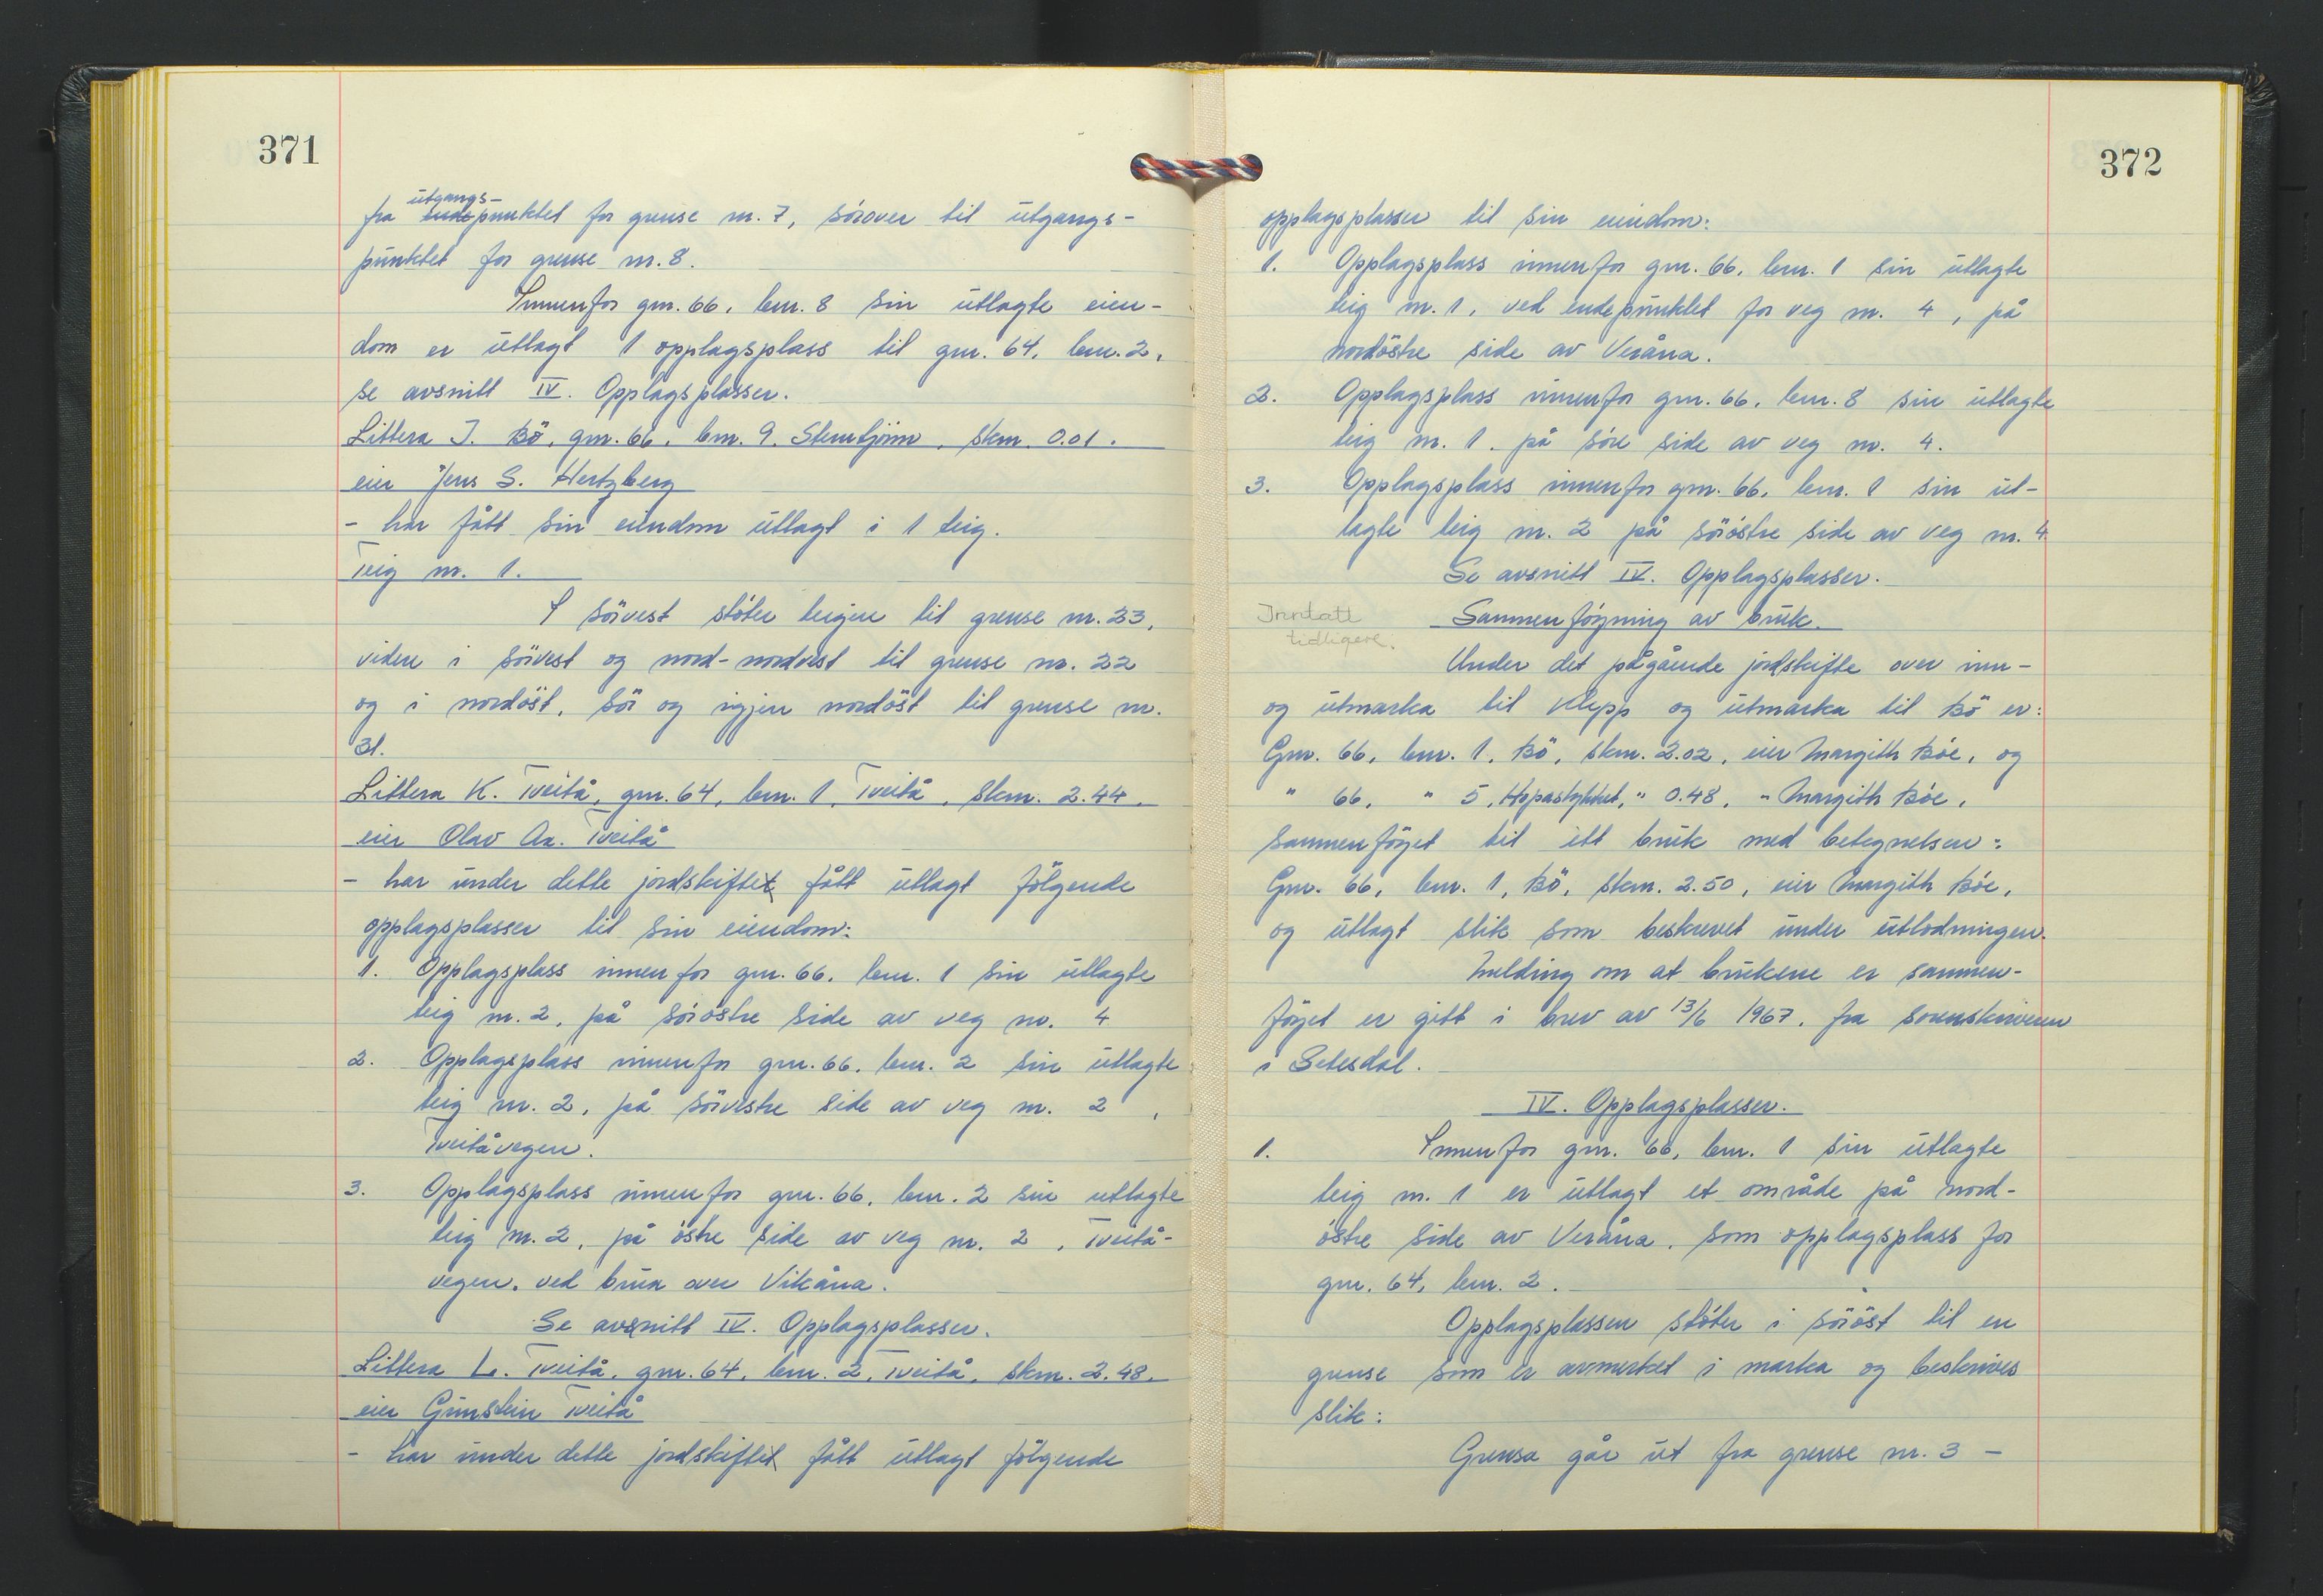 371
fra utgangs-
endepunktet for grense nr. 7, sörover til utgangs-
punktet for grense nr. 8.
Innenfor gnr. 66, bnr. 8 sin utlagte eien-
dom er utlagt 1 opplagsplass til gnr. 64, bnr. 2,
se avsnitt IV. Opplagsplasser.
Littera J. Bö, gnr. 66, bnr. 9, Stemtjönn, skm. 0.01.
eier Jens S. Hertzberg
- har fått sin eiendom utlagt i 1 teig.
Teig nr. 1.
I sörvest stöter teigen til grense nr. 23,
videre i sörvest og nord-nordvest til grense nr. 22
og i nordöst, sör og igjen nordöst til grense nr.
31.
Littera K. Tveitå, gnr. 64, bnr. 1, Tveitå, skm. 2.44,
eier Olav Aa. Tveitå
- har under dette jordskiftet fått utlagt fölgende
opplagsplasser til sin eiendom:
1. Opplagsplass innenfor gnr. 66, bnr. 1 sin utlagte
teig nr. 2, på söröstre side av veg nr. 4
2. Opplagsplass innenfor gnr. 66, bnr. 2 sin utlagte
teig nr. 2, på sörvestre side av veg nr. 2,
Tveitåvegen.
3. Opplagsplass innenfor gnr. 66, bnr. 2 sin utlagte
teig nr. 2, på östre side av veg nr. 2, Tveitå-
vegen, ved brua over Vikåna.
Se avsnitt IV. Opplagsplasser.
Littera L. Tveitå, gnr. 64, bnr. 2, Tveitå, skm. 2.48,
eier Grimstein Tveitå
- har under dette jordskiftet fått utlagt fölgende
372
opplagsplasser til sin eiendom:
1. Opplagsplass innenfor gnr. 66, bnr. 1 sin utlagte
teig nr. 1, ved endepunktet for veg nr. 4, på
nordöstre side av Veråna.
2. Opplagsplass innenfor gnr. 66, bnr. 8 sin utlagte
teig nr. 1, på söre side av veg nr. 4.
3. Opplagsplass innenfor gnr. 66, bnr. 1 sin ut-
lagte teig nr. 2 på söröstre side av veg nr. 4
Se avsnitt IV. Opplagsplasser.
Inntatt
tidligere.
Sammenföyning av bruk.
Under det pågående jordskifte over inn-
og utmarka til Klepp og utmarka til Bö er:
Gnr. 66, bnr. 1, Bö, skm. 2.02, eier Margith Böe, og
" 66, " 5, Hopastykket, " 0.48, " Margith Böe,
sammenföyet til ett bruk med betegnelsen:
Gnr. 66, bnr. 1, Bö, skm. 2.50, eier Margith Böe,
og utlagt slik som beskrevet under utlodningen.
Melding om at brukene er sammen-
föyet er gitt i brev av 13/6 1967, fra sorenskriveren
i Setesdal.
IV. Opplagsplasser.
1. Innenfor gnr. 66, bnr. 1 sin utlagte
teig nr. 1 er utlagt et område på nord-
östre side av Veråna, som opplagsplass for
gnr. 64, bnr. 2.
Opplagsplassen stöter i söröst til en
grense som er avmerket i marka og beskrives
slik:
Grensa går ut fra grense nr. 3 -